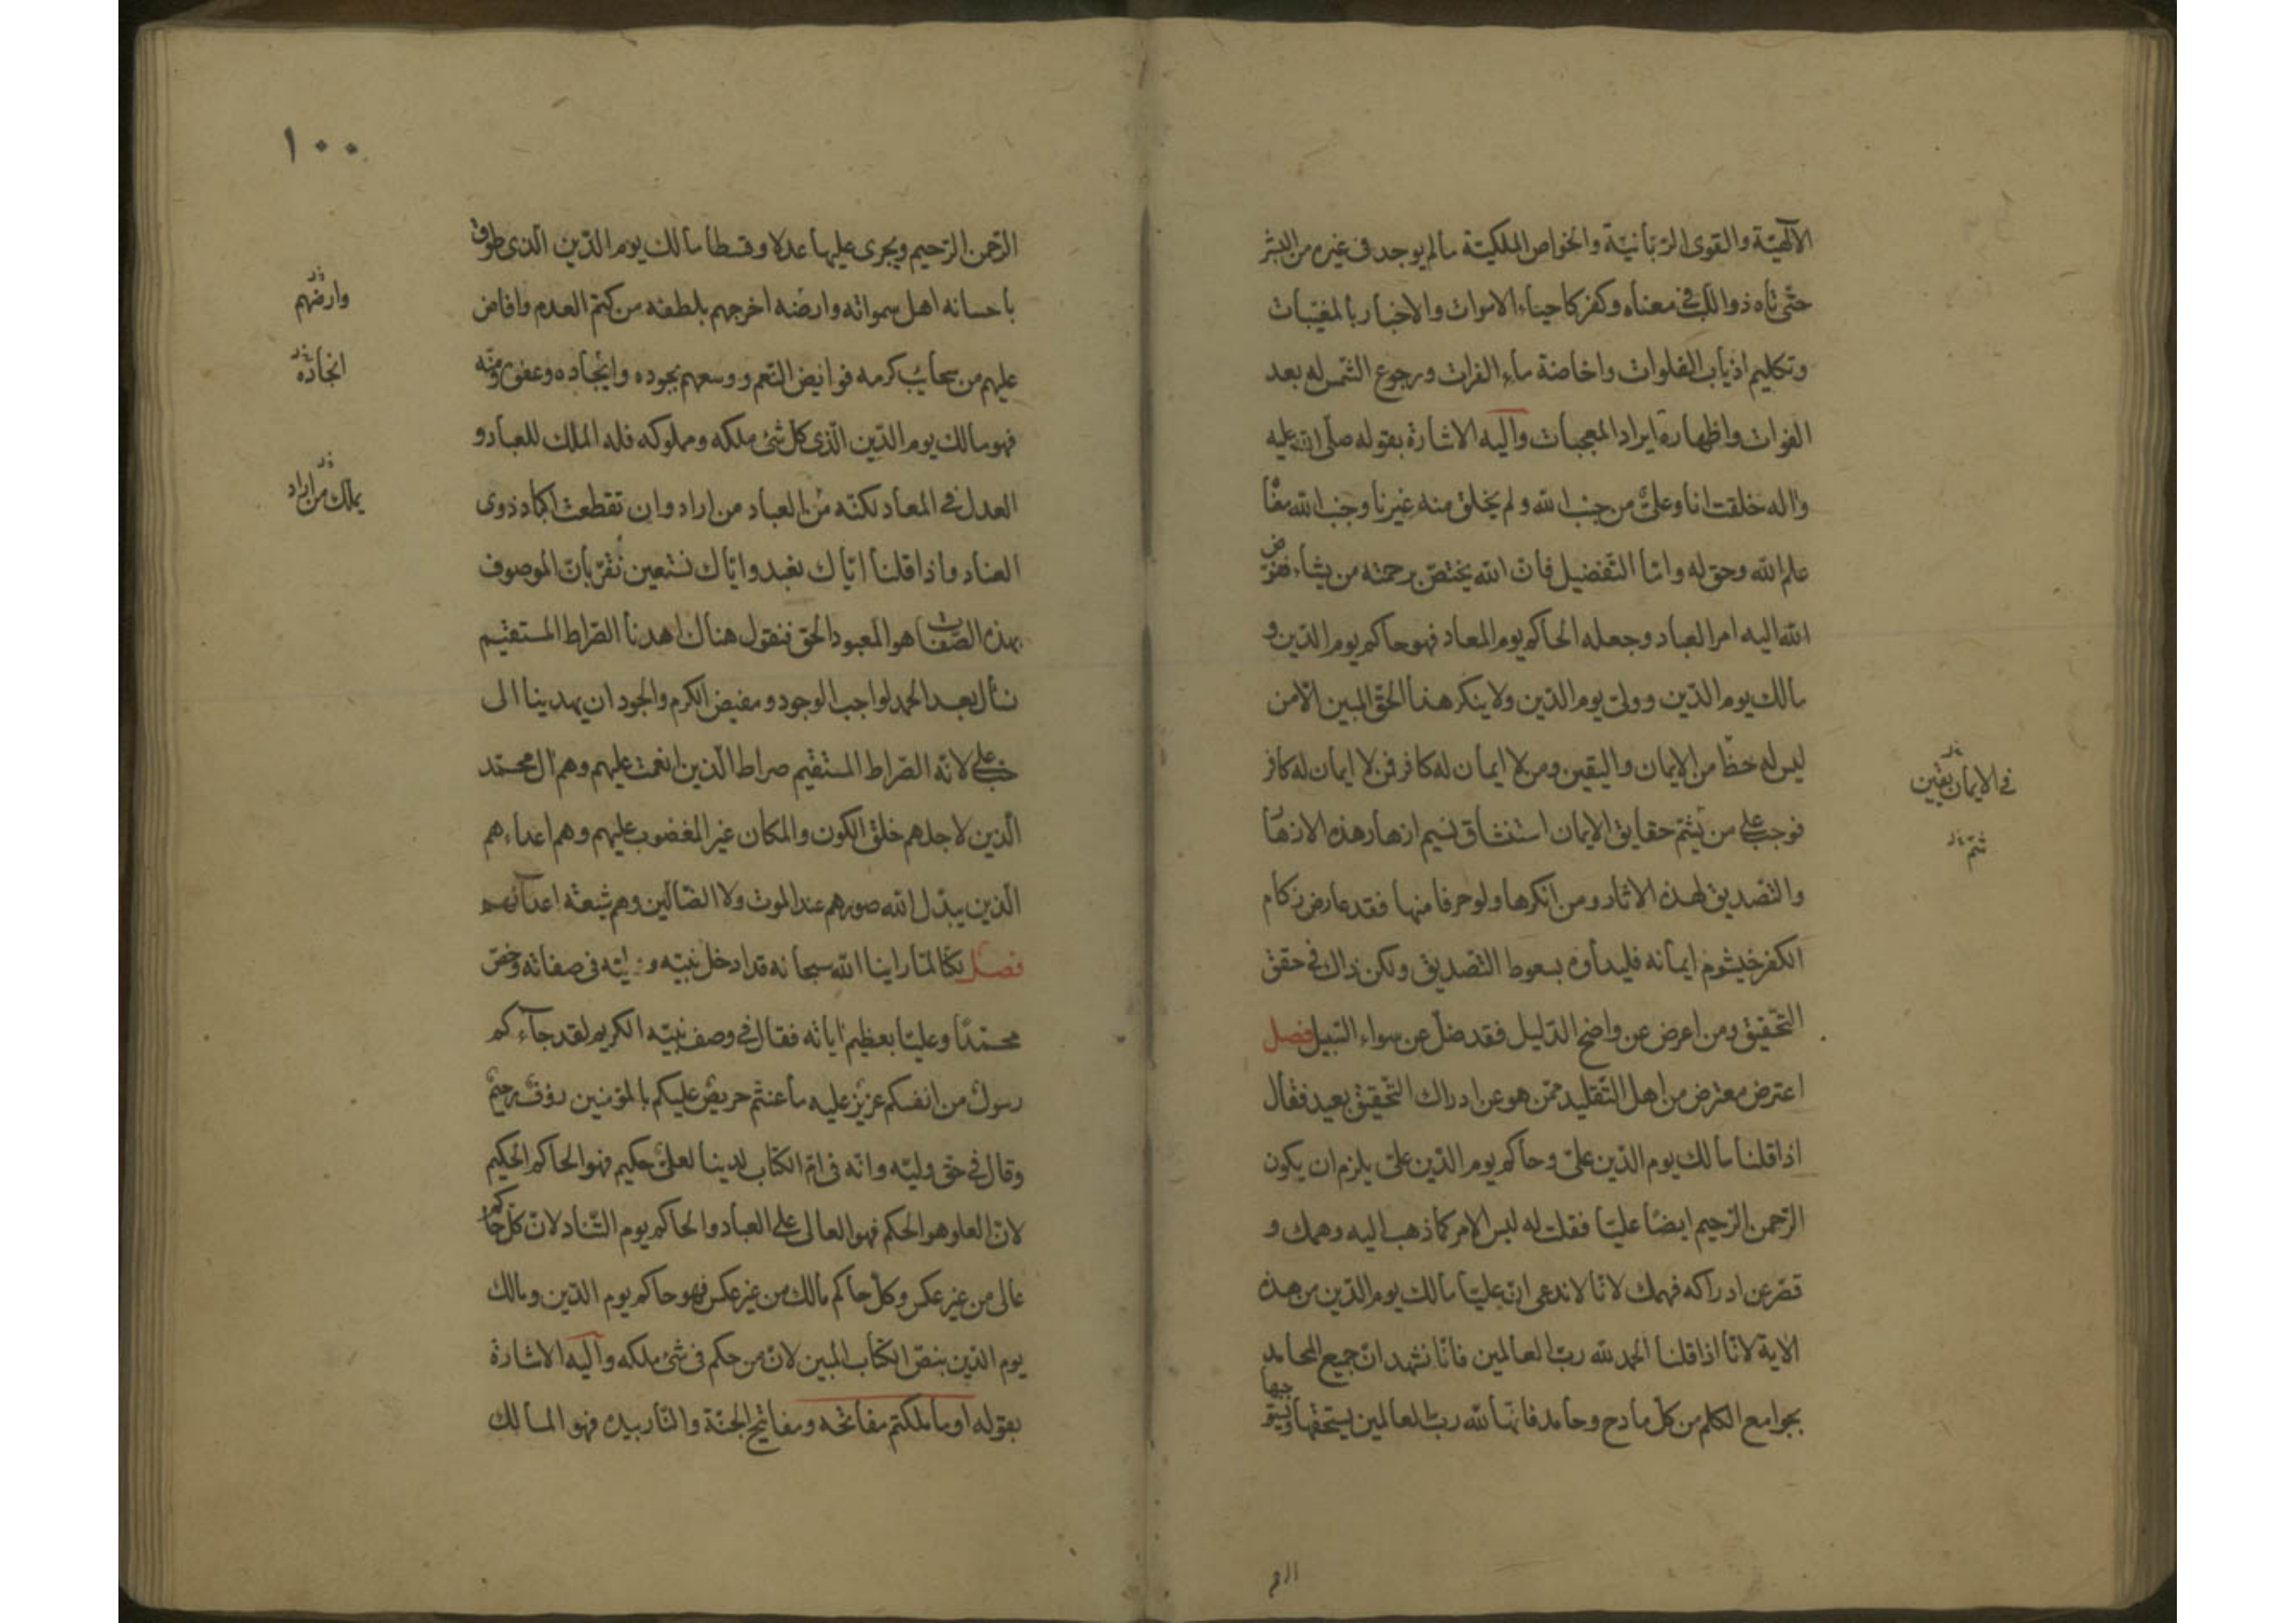 الآلهيّة والقوى الرّبّانيّة والخواص الملكيّة ما لم يوجد في غيره من البشر
حتّى تاه ذو اللّب في معناه وكفر كاحياء الاموات والاخبار بالمغيبات
وتكليم اذياب الفلوات واخاضة ماء الفرات ورجوع الشّمس له بعد
الفوات واظهاره ايراد المعجبات واليه الاشارة بقوله صلّى الله عليه
واله خلقت انا وعلىّ من جنب الله ولم يخلق منه غيرنا وجنب الله معنا
علم الله وحق له وامّا التّفضيل فانّ الله يختصّ برحمته من يشاء ففوّض
الله اليه امر العباد وجعله الحاكم يوم المعاد فهو حاكم يوم الدّين و
مالك يوم الدّين وولىّ يوم الدّين ولا ينكر هذا الحقّ المبين الّا من
ليس له حظّ من الايمان واليقين ومن لا ايمان له كافر فمن لا ايمان له كافر
في الايمان يقين
فوجب على من يشمّ حقايق الايمان استنشاق نسيم ازهار هذه الازها
شمّ
والتّصديق لهذه الاثار ومن انكرها ولو حرفا منها فقد عارض زكام
الكفر خيشوم ايمانه فليداوه بسعوط التّصديق ولكن ذاك في حقق
التّحقيق ومن اعرض عن واضح الدّليل فقد ضلّ عن سواء السّبيل فصل
اعترض معترض من اهل التّقليد ممّن هو عن ادراك التّحقيق بعيد فقال
اذا قلنا مالك يوم الدّين علىّ وحاكم يوم الدّين علىّ يلزم ان يكون
الرّحمن الرّحيم ايضًا عليّا فقلت له ليس الامر كما ذهب اليه وهمك و
قصّر عن ادراكه فهمك لانّا لا ندعى انّ عليّا مالك يوم الدّين من هذه
الاية لانّا اذا قلنا الحمد لله ربّ العالمين فانّا نشهد انّ جميع المحامد
بجوامع الكلم من كلّ مادح وحامد فانّها لله ربّ العالمين يستحقّها ويستوجبها
الر
١٠٠
الرّحمن الرّحيم ويجرى عليها عدلا وقسطا مالك يوم الدّين الّذى طوق
باحسانه اهل سمواته وارضه اخرجهم بلطفه من كتم العدم وافاض
وارضهم
عليهم من سحائب كرمه فوايض النّعم ووسعهم بجوده وايجاده وعفوه ومنّه
انجاده
فهو مالك يوم الدّين الّذى كلّ شئ ملكه ومملوكه فله الملك للعباد و
العدل في المعاد لكنّه من العباد من اراد وان تقطعت اكباد ذوى
يملّك من اراد
العناد واذا قلنا ايّاك نعبد وايّاك نستعين نقرّ بانّ الموصوف
بهذه الصّفات هو المعبود الحق فنقول هناك اهدنا الصّراط المستقيم
نسأل بعد الحمد لواجب الوجود ومفيض الكرم والجود ان يهدينا الى
حبّ على لانّه الصّراط المستقيم صراط الّذين انعمت عليهم وهم ال محمّد
الّذين لاجلهم خلق الكون والمكان غير المغضوب عليهم وهم اعداءهم
الّذين يبدّل الله صورهم عند الموت ولا الضّالّين وهم شيعة اعدآئهم
فصل لكنّا لمّا راينا الله سبحانه قد ادخل نبيّه و في صفاته وخصّ
محمّدًا وعليّا بعظيم اياته فقال في وصف نبيّه الكريم لقد جآءكم
رسول من انفسكم عزيز عليه ما عنتّم حريص عليكم بالمؤمنين رؤف رحيم
وقال في حقّ وليّه وانّه في امّ الكتاب لدينا لعلىّ حكيم فهو الحاكم الحكيم
لانّ العلو هو الحكم فهو العالى على العباد والحاكم يوم التّناد لانّ كلّ حاكم
عالى من غير عكس وكلّ حاكم مالك من غير عكس فهو حاكم يوم الدّين ومالك
يوم الدّين بنصّ الكتاب المبين لانّ من حكم في شئ ملكه واليه الاشارة
بقوله او ما ملكتم مفاتحه ومفاتيح الجنّة والنّار بيده فهو المالك